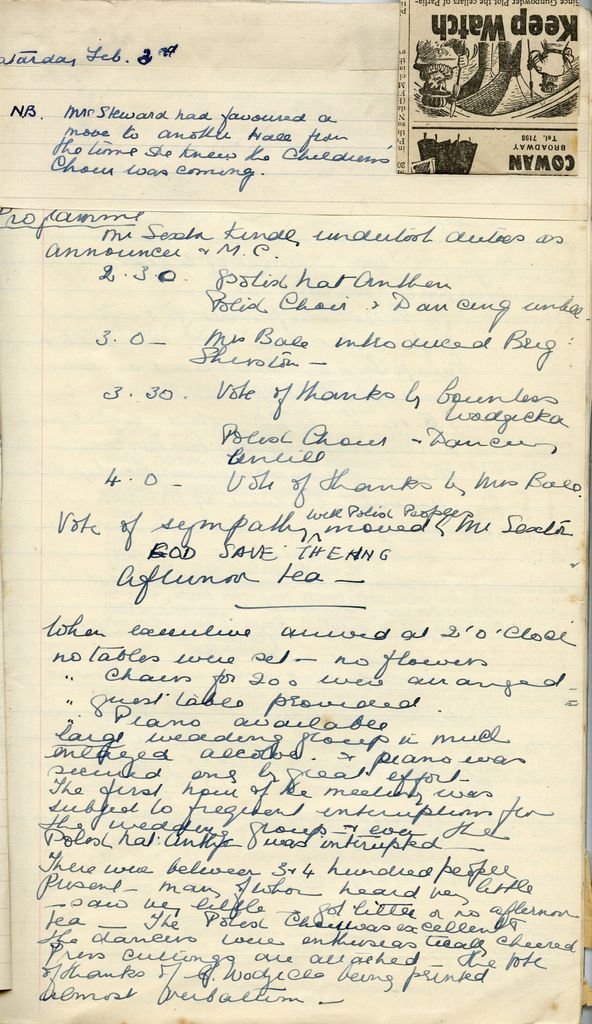 Saturday Feb. 2nd
NB. Mrs Steward had favoured a
move to another Hall from
the time she knew the Childrens'
Choir was coming.
Since Gunpowder Plot the cellars of Parlia-
Keep Watch
COWAN
BROADWAY
Tel. 7198
Programme
Mr Sexton Kindly undertook duties as
announcer & M.C.
2.30. Polish Nat Anthem
Polish Choir & Dancing
3.0 – Mrs Bale introduced Brig:
3.30. Vote of thanks by Countess
Wodzicka
Polish Choir & Dancing
untill
4.0 – Vote of thanks by Mrs Bale.
Vote of sympathy with Polish Peoples moved by Mr Sexton
GOD SAVE THE KING
Afternoon tea –
When executive arrived at 2 'O' Clock
no tables were set – no flowers
" Chairs for 200 were arranged –
" guest table provided.
" Piano available
large wedding group in much
enlarged alcove. & piano was
secured only by great effort –
The first hour of the meeting was
subject to frequent interruptions from
the wedding group – & even the
Polish Nat Anthem was interrupted –
There were between 3 & 4 hundred people
Present – many of whom heard very little
– saw very little – got little or no afternoon
tea – The Polish Choir was excellent &
the dancers were enthusiastically cheered
Press cuttings are attached – the vote
of thanks of C. Wodzicka being printed
almost verbatim –